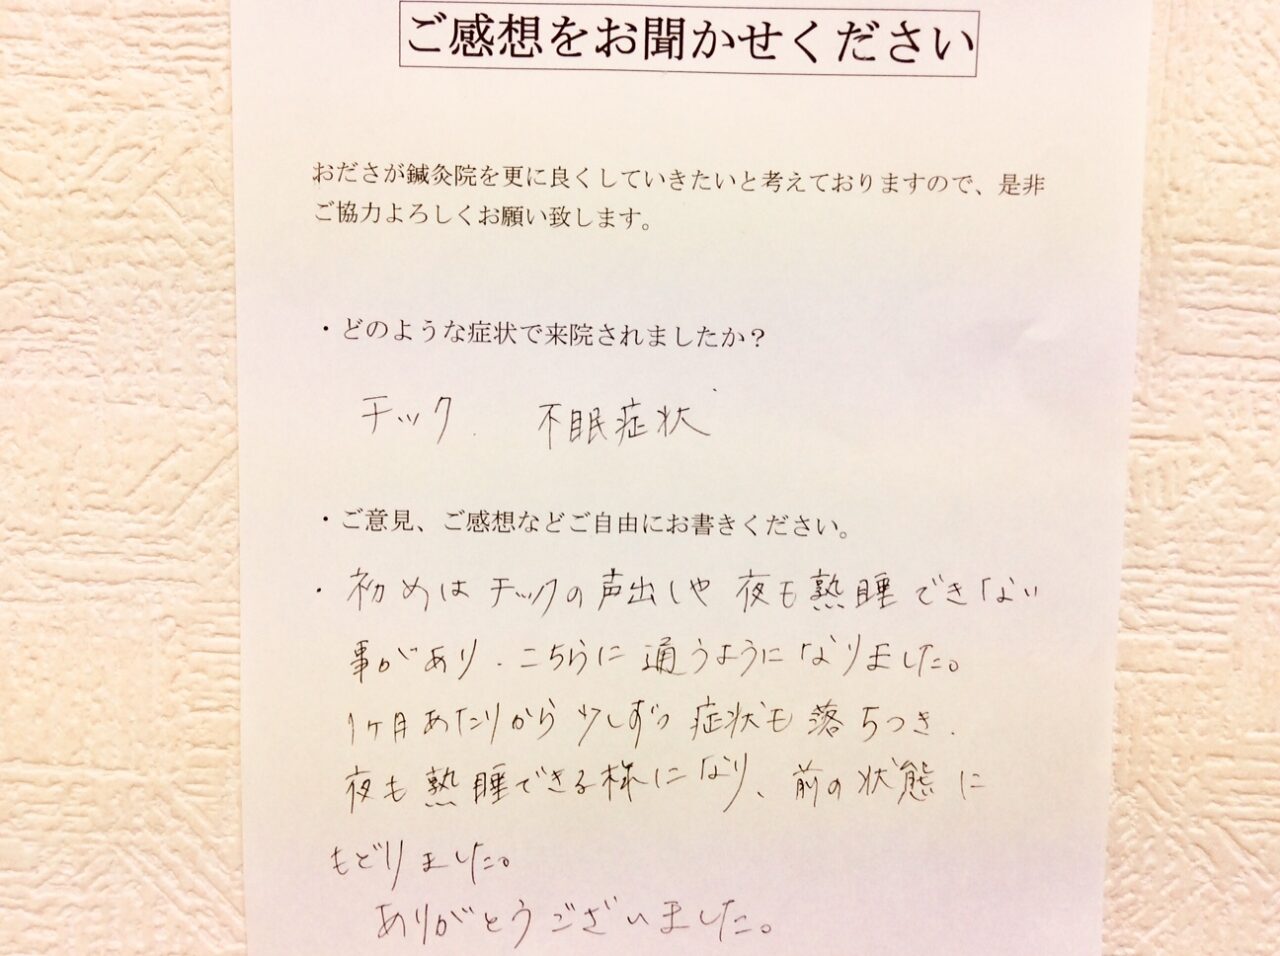 ご感想をお聞かせください
おださが鍼灸院を更に良くしていきたいと考えておりますので、是非
ご協力よろしくお願い致します。
・どのような症状で来院されましたか？
チック 不眠症状
・ご意見、ご感想などご自由にお書きください。
・初めはチックの声出しや夜も熟睡できない
事があり、こちらに通うようになりました。
1ヶ月あたりから少しずつ症状も落ちつき、
夜も熟睡できる様になり、前の状態に
もどりました。
ありがとうございました。